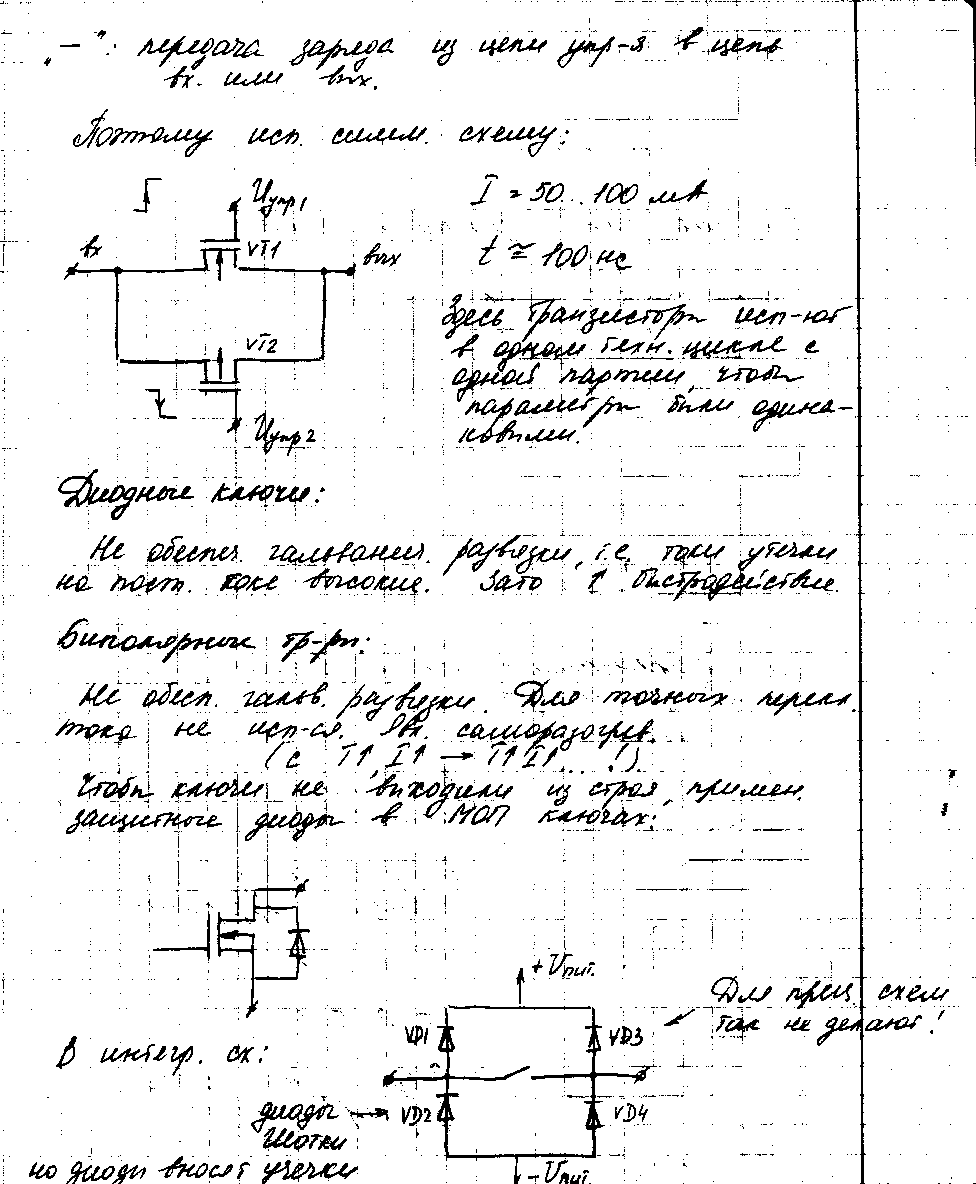 „—": передача заряда из цепи упр-я в цепь
вх. или вых.
Поэтому исп. симм. схему:
Uупр1
I = 50...100 мА
вх
VT1
вых
t ≃ 100 нс
VT2
Uупр2
Здесь транзисторы исп-ют
в одном техн. цикле с
одной партии, чтобы
параметры были одина-
ковыми.
Диодные ключи:
Не обеспеч. гальванич. развязки, т.е. токи утечки
на пост. токе высокие. Зато ↑ быстродействие
Биполярные тр-ры:
Не обесп. гальв. развязки. Для точных перекл.
тока не исп-ся. Явл. саморазогрев.
(с T↑, I↑ → T↑ I↑ ... !)
Чтобы ключи не выходили из строя, примен.
защитные диоды в МОП ключах:
+Uпит.
Для прец. схем
так не делают!
VD1
VD3
В интегр. сх:
диоды
Шотки
VD2
VD4
но диоды вносят утечки
-Uпит.